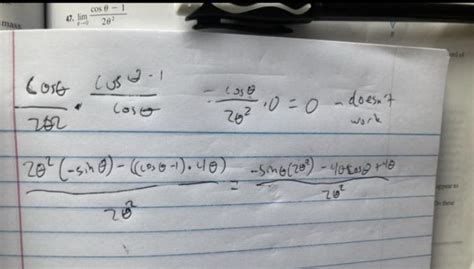 mass
47. lim θ→0 (cos θ − 1)/(2θ²)
cosθ/2θ2 · cosθ-1/cosθ - cosθ/2θ² · 0 = 0 - doesn't work
2θ²(-sinθ) - ((cosθ-1)·4θ)/2θ² = -sinθ(2θ²) - 4θcosθ+4θ/2θ²